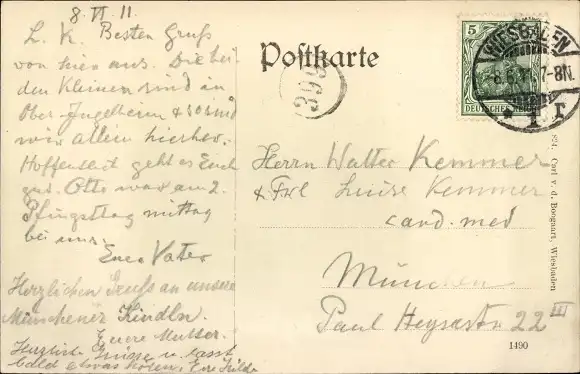 8. VI 11.
L. K. Besten Gruß
von hier aus. Die bei-
den Kleinen sind in
Ober-Ingelheim & so sind
wir allein hierher.
Hoffentlich geht es Euch
gut. Otto war am 2.
Pfingsttag mittag
bei uns.
Euer Vater
Herzlichen Gruß an unsere
Münchener Kindln.
Eure Mutter.
Herzliche Grüße u. lasst
bald etwas hören, Eure Hilde
Postkarte
399
5
DEUTSCHES REICH
WIESBADEN
8.6.11. 7-8N.
* 1 r
Herrn Walter Kemmer
& Frl Luise Kemmer
cand. med
München
Paul Heysestr 22 III
Carl v. d. Boogaart, Wiesbaden
1490